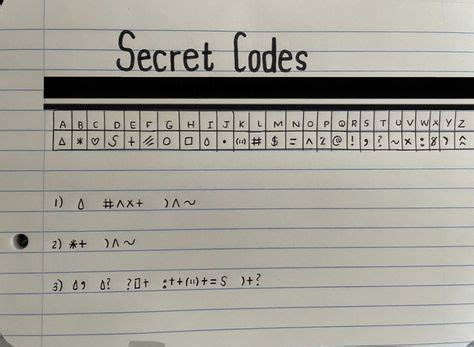 Secret Codes
A B C D E F G H I J K L M N O P Q R S T U V W X Y Z
△ * ♡ S + ⫻ O □ ◊ • (::) # $ = ^ 2 @ ! , ? ~ x : 8 ) ︽
1) ◊ #^x+ )^~
2) *+ )^~
3) ◊, △? ?□+ :++(::)+=S )+?